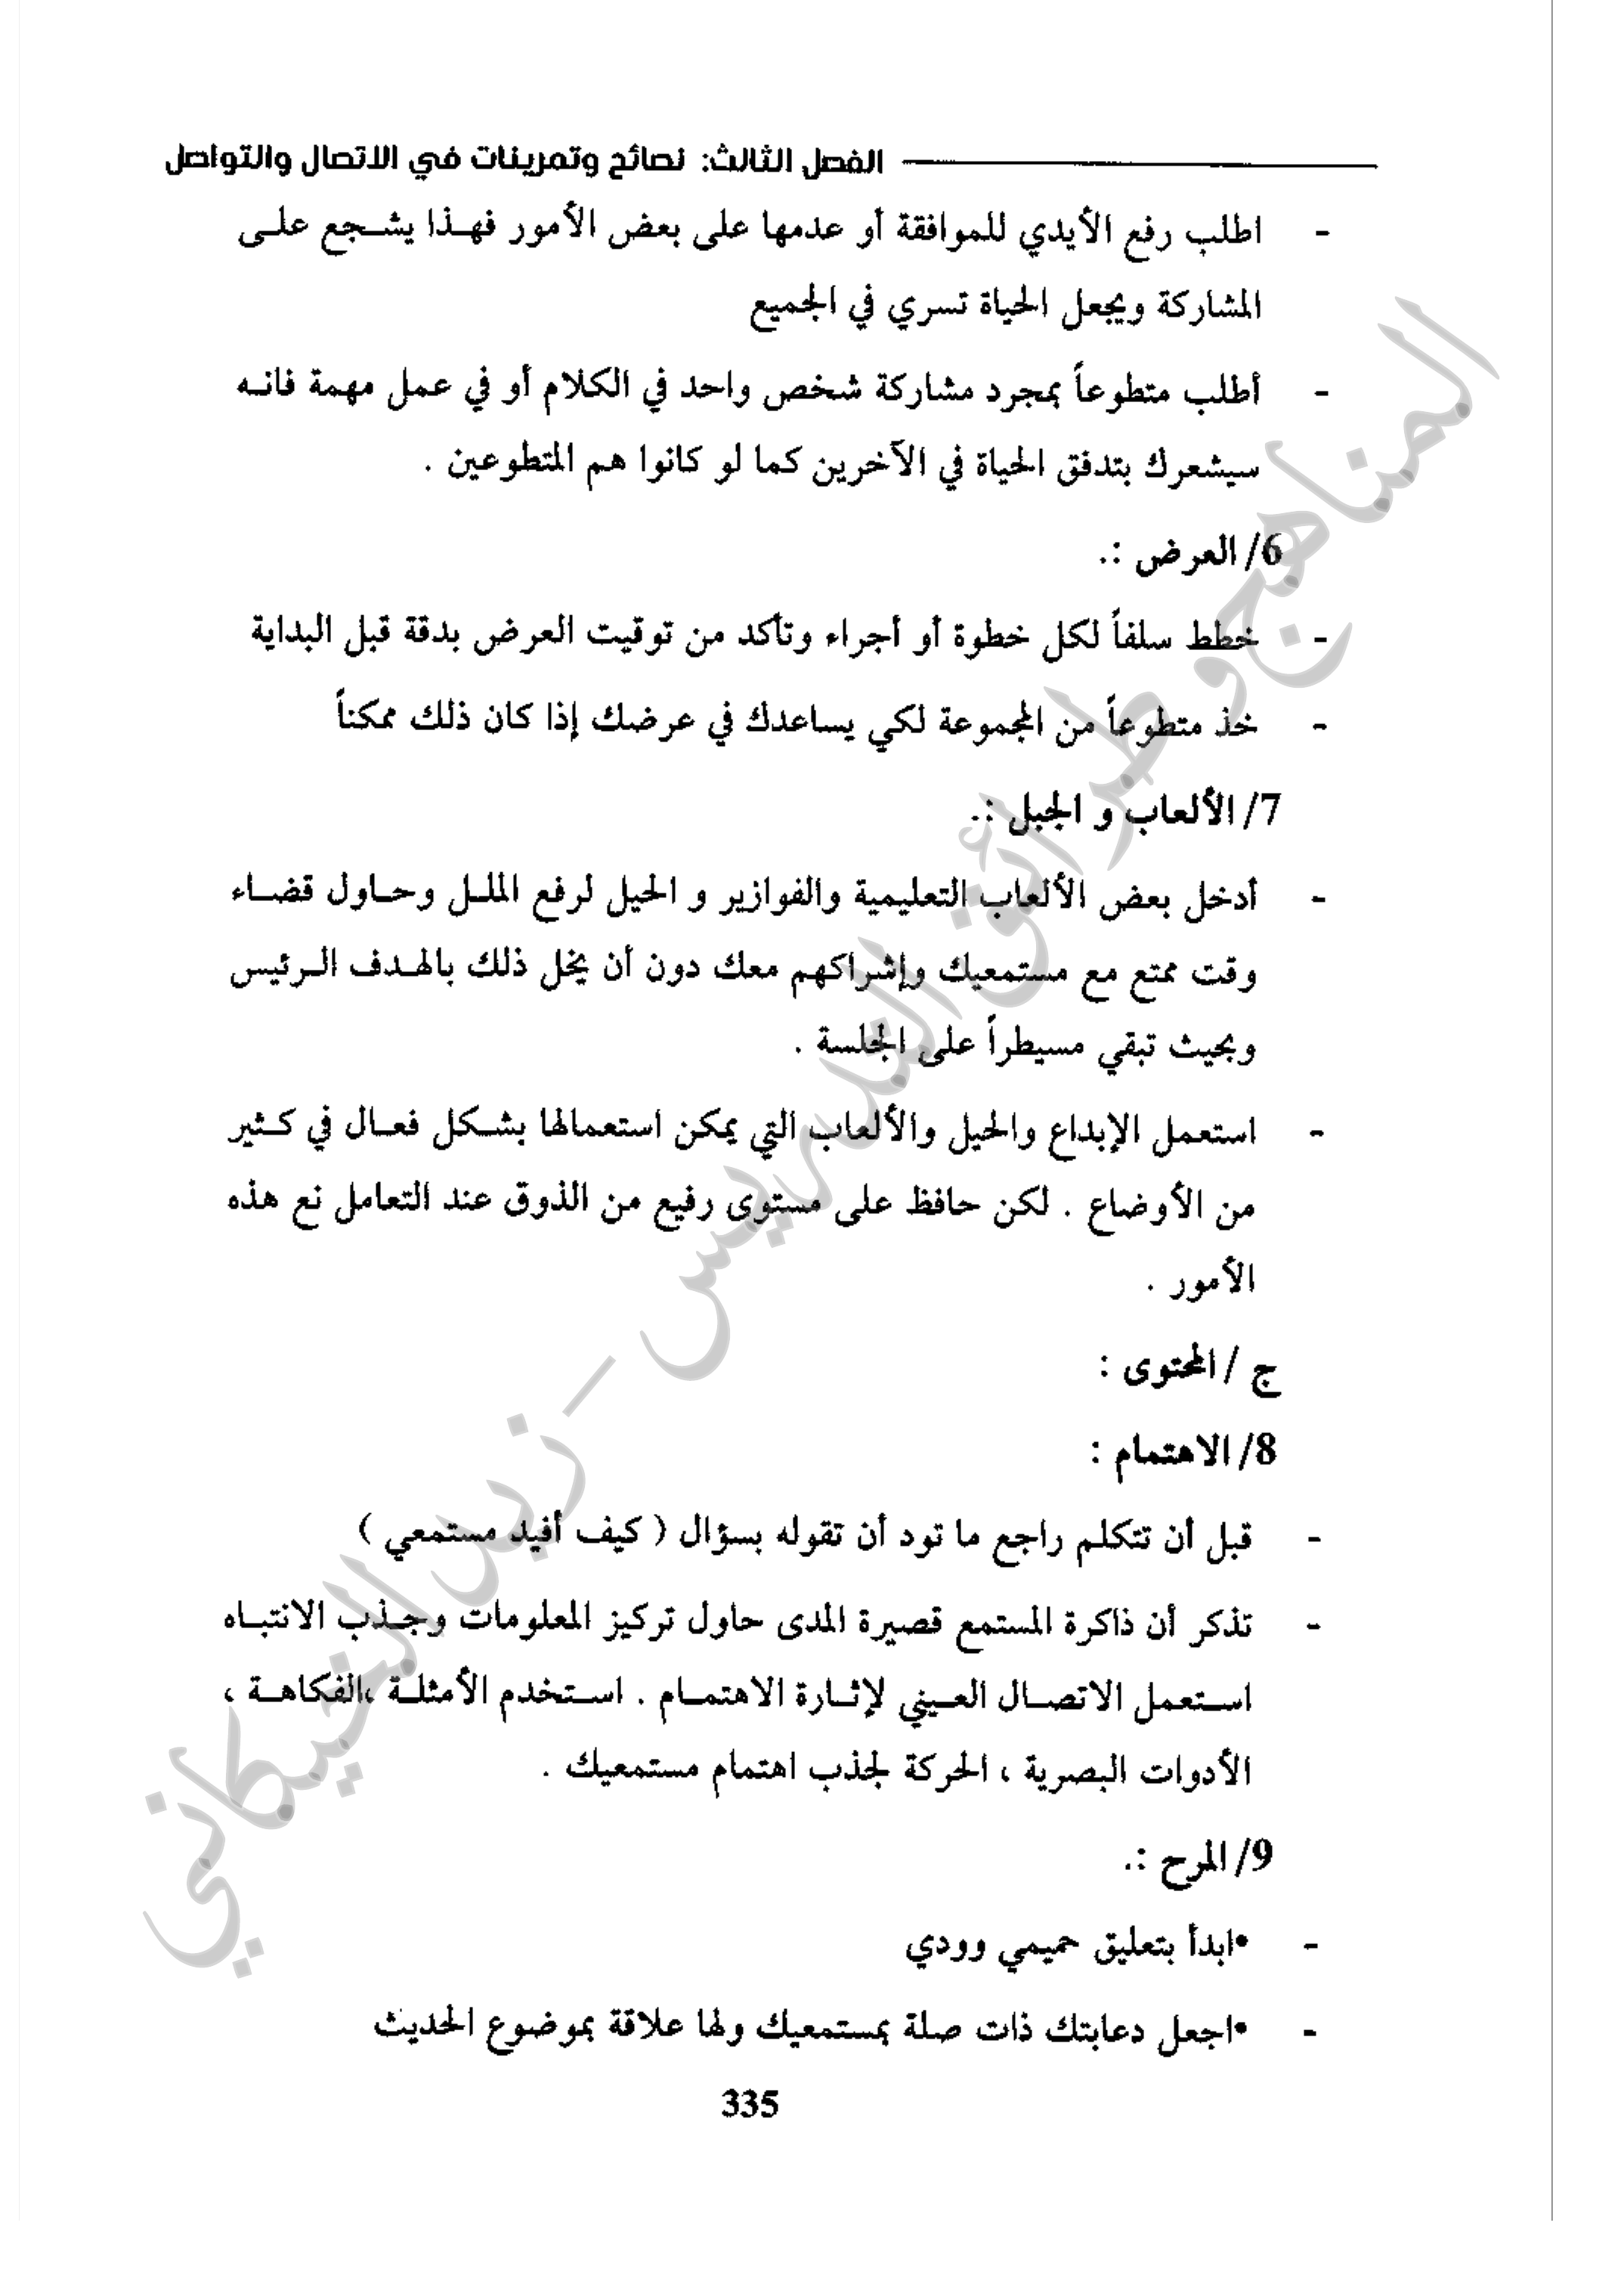 الفصل الثالث: نصائح وتمرينات في الاتصال والتواصل
- اطلب رفع الأيدي للموافقة أو عدمها على بعض الأمور فهذا يشجع على
المشاركة ويجعل الحياة تسري في الجميع
- أطلب متطوعاً بمجرد مشاركة شخص واحد في الكلام أو في عمل مهمة فانه
سيشعرك بتدفق الحياة في الآخرين كما لو كانوا هم المتطوعين .
6/ العرض :.
- خطط سلفاً لكل خطوة أو أجراء وتأكد من توقيت العرض بدقة قبل البداية
- خذ متطوعاً من المجموعة لكي يساعدك في عرضك إذا كان ذلك ممكناً
7/ الألعاب و الجبل :.
- أدخل بعض الألعاب التعليمية والفوازير و الحيل لرفع الملل وحاول قضاء
وقت ممتع مع مستمعيك وإشراكهم معك دون أن يخل ذلك بالهدف الرئيس
وبحيث تبقي مسيطراً على الجلسة .
- استعمل الإبداع والحيل والألعاب التي يمكن استعمالها بشكل فعال في كثير
من الأوضاع . لكن حافظ على مستوى رفيع من الذوق عند التعامل نع هذه
الأمور .
ج / المحتوى :
8/ الاهتمام :
- قبل أن تتكلم راجع ما تود أن تقوله بسؤال ( كيف أفيد مستمعي )
- تذكر أن ذاكرة المستمع قصيرة المدى حاول تركيز المعلومات وجذب الانتباه
استعمل الاتصال العيني لإثارة الاهتمام . استخدم الأمثلة ،الفكاهة ،
الأدوات البصرية ، الحركة لجذب اهتمام مستمعيك .
9/ المرح :.
- •ابدأ بتعليق حميمي وودي
- •اجعل دعابتك ذات صلة بمستمعيك ولها علاقة بموضوع الحديث
335
المناهج وطرائق التدريس - زيد الخيكاني